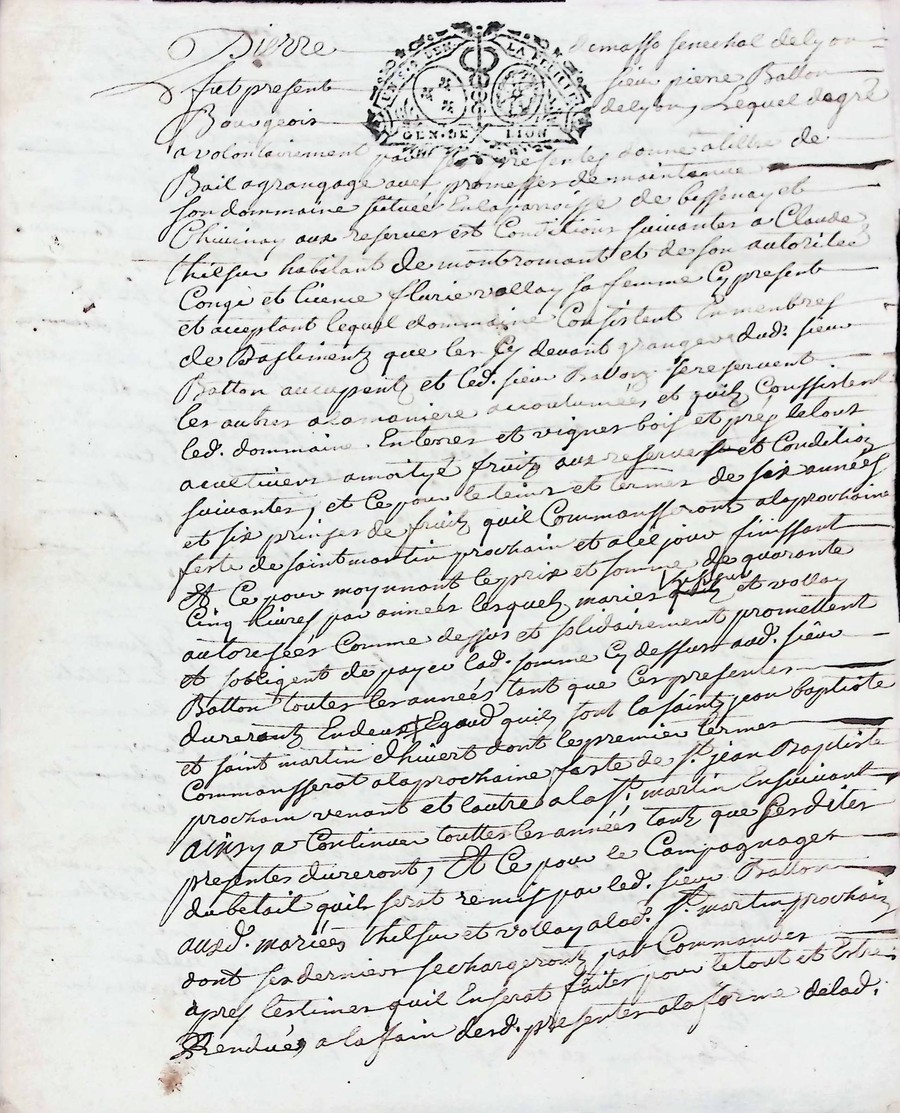 Pierre demasso senechal delyon
fut present sieur pierre Batton
Bourgeois delyon, Lequel degré
avolontairement par ses presentes donne atiltre de
Bail agrangage avec promesses de maintenue
son dommaine situéé Enlaparoisse de bessenay et
Chivinay aux reserves est Conditions suivantes a Claude
thilsu habitant de montromant et de son autoritéé
Congé et licence flurie vollay sa femme Cy present
et aceptant lequel dommaine Consistent En menbres
de Bastimentz que les Cy devant grangers dud. sieur
Batton aucupentz et led. sieur Batton sereservent
les autres alamaniere accoutuméés et quilz Conssistent
led. dommaine. Enterres et vignes bois et préz letout
acultiver amoityé fruitz aux reserves et Conditioz
suivantes, et Ce pour letems et termes de six annéés
et six prinses de fruitz quil Commansseront alaprochaine
feste de saint martin prochain et aléé jour finissant
Et Ce pour moynnont leprix et somme de quarante
Cinq livres par annéés lesquelz mariés thilsu et vollay
autoriséés Comme dessus et solidairement promettent
et sobligent de payer lad. somme Cy dessus aud. sieur
Batton toutes les annéés tant que Ces presentes
dureront Endeux Egaud quilz sont la saintz jean baptiste
et saint martin dhivert dont lepremier termes
Commansserat alaprochaine faste de st. jean Baptiste
prochain venant et lautre ala st. martin Ensuivant
ainsy a Continuer touttes les annéés tant que sesdites
presentes dureront, Et Ce pour le Campagnages
dubetail quils serat remis par led. sieur Batton
ausd. mariéés thilsu et vollay alad. st. martin prochain
dont ses derniers sechargerontz par Commandes
apres lestimes quil Enserat faites pour letout et Estre
Rendués a la fain desd. presentes ala forme delad.
GEN. DE LION